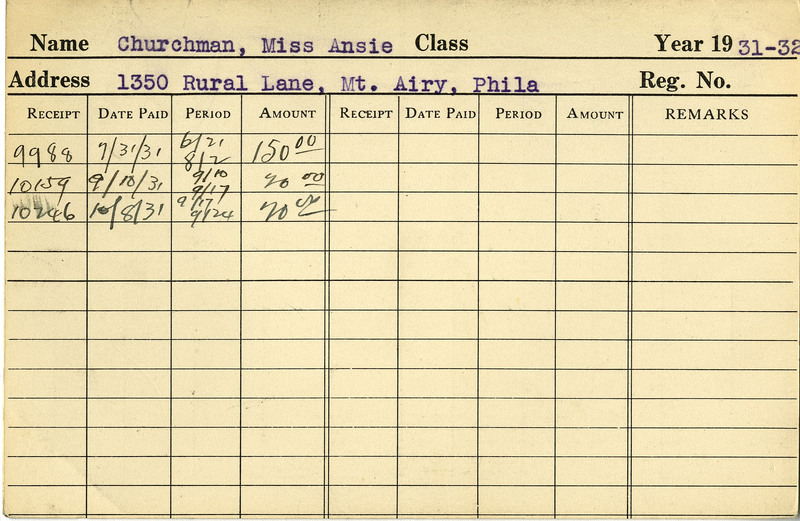 Name Churchman, Miss Ansie Class Year 19 31-32
Address 1350 Rural Lane, Mt. Airy, Phila Reg. No.
RECEIPT DATE PAID PERIOD AMOUNT RECEIPT DATE PAID PERIOD AMOUNT REMARKS
9988 7/31/31 6/21 8/2 150 00
10159 9/10/31 9/10 9/17 20 00
10246 10/8/31 9/17 9/24 20 00